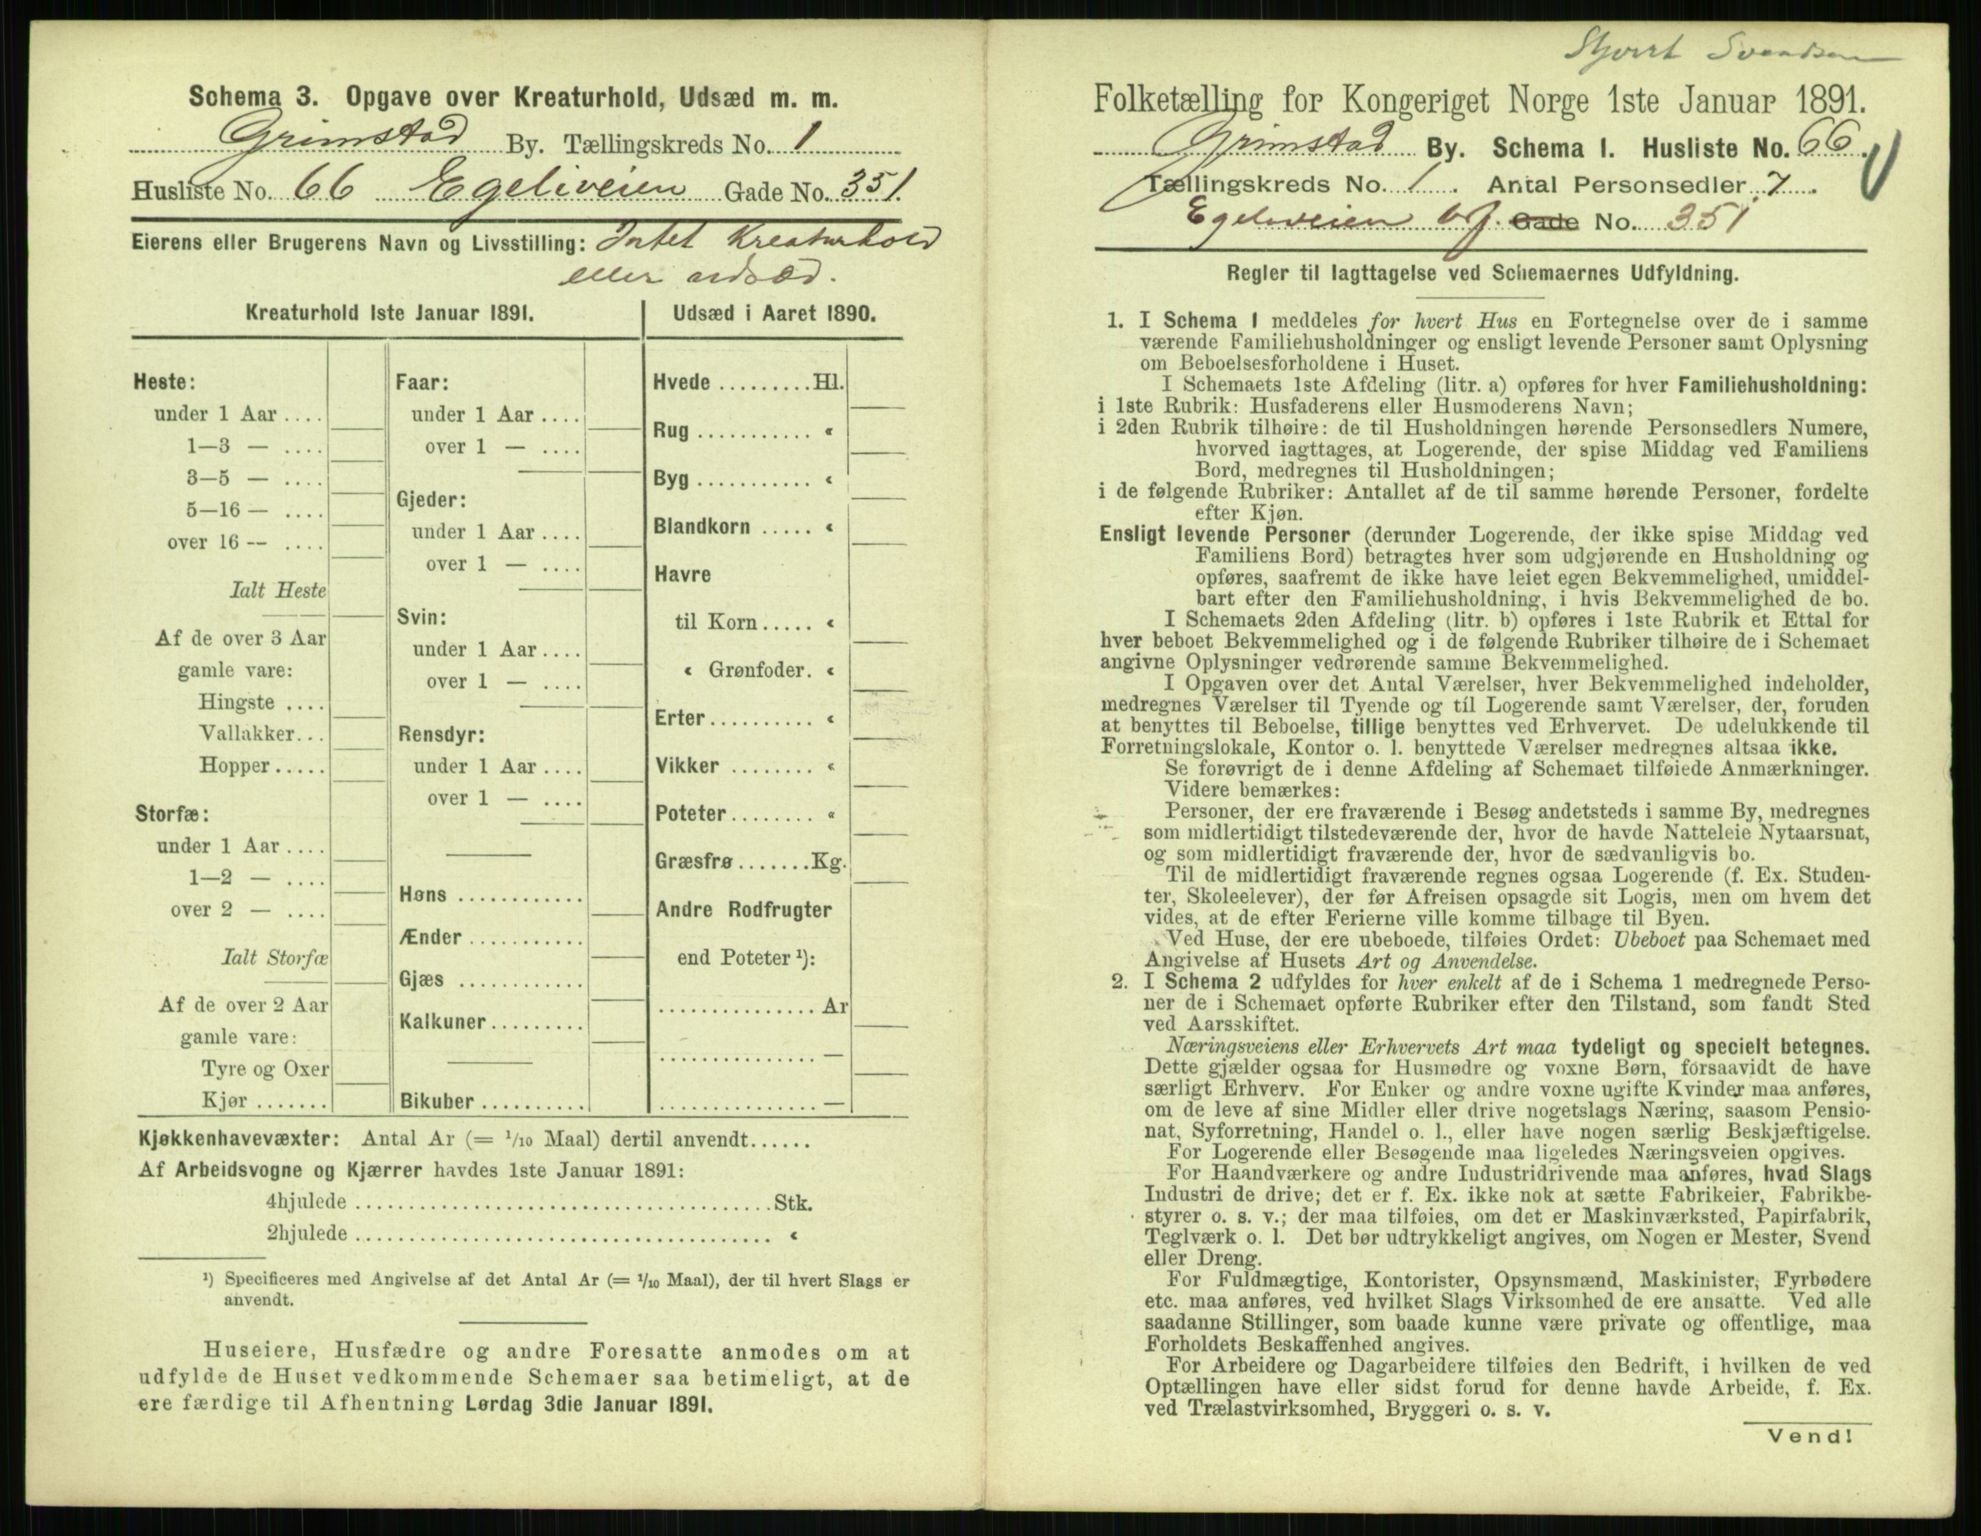 Schema 3. Opgave over Kreaturhold, Udsæd m. m.
Grimstad By. Tællingskreds No. 1
Husliste No. 66 Egeliveien Gade No. 351.
Eierens eller Brugerens Navn og Livsstilling: Intet Kreaturhold
eller udsæd.
Kreaturhold 1ste Januar 1891.
Heste:
under 1 Aar ....
1—3 — ....
3—5 — ....
5—16 — ....
over 16 -- ....
Ialt Heste
Af de over 3 Aar
gamle vare:
Hingste ....
Vallakker...
Hopper.....
Storfæ:
under 1 Aar ....
1—2 — ....
over 2 — ....
Ialt Storfæ
Af de over 2 Aar
gamle vare:
Tyre og Oxer
Kjør .......
Faar:
under 1 Aar ....
over 1 — ....
Gjeder:
under 1 Aar ....
over 1 — ....
Svin:
under 1 Aar ....
over 1 — ....
Rensdyr:
under 1 Aar ....
over 1 — ....
Høns ............
Ænder ...........
Gjæs ............
Kalkuner.........
Bikuber ..........
Udsæd i Aaret 1890.
Hvede .........Hl.
Rug ........... «
Byg ........... «
Blandkorn ..... «
Havre
til Korn..... «
« Grønfoder. «
Erter.......... «
Vikker ........ «
Poteter........ «
Græsfrø .......Kg.
Andre Rodfrugter
end Poteter ¹):
............... Ar
............... —
............... —
Kjøkkenhavevæxter: Antal Ar (= 1/10 Maal) dertil anvendt......
Af Arbeidsvogne og Kjærrer havdes 1ste Januar 1891:
4hjulede ........................................Stk.
2hjulede ........................................ «
¹) Specificeres med Angivelse af det Antal Ar (= 1/10 Maal), der til hvert Slags er
anvendt.
Huseiere, Husfædre og andre Foresatte anmodes om at
udfylde de Huset vedkommende Schemaer saa betimeligt, at de
ere færdige til Afhentning Lørdag 3die Januar 1891.
Svendsen
Folketælling for Kongeriget Norge 1ste Januar 1891.
Grimstad By. Schema I. Husliste No. 66.
Tællingskreds No. 1. Antal Personsedler 7.
Egeliveien Gade No. 351
Regler til Iagttagelse ved Schemaernes Udfyldning.
1. I Schema 1 meddeles for hvert Hus en Fortegnelse over de i samme
værende Familiehusholdninger og ensligt levende Personer samt Oplysning
om Beboelsesforholdene i Huset.
I Schemaets 1ste Afdeling (litr. a) opføres for hver Familiehusholdning:
i 1ste Rubrik: Husfaderens eller Husmoderens Navn;
i 2den Rubrik tilhøire: de til Husholdningen hørende Personsedlers Numere,
hvorved iagttages, at Logerende, der spise Middag ved Familiens
Bord, medregnes til Husholdningen;
i de følgende Rubriker: Antallet af de til samme hørende Personer, fordelte
efter Kjøn.
Ensligt levende Personer (derunder Logerende, der ikke spise Middag ved
Familiens Bord) betragtes hver som udgjørende en Husholdning og
opføres, saafremt de ikke have leiet egen Bekvemmelighed, umiddel-
bart efter den Familiehusholdning, i hvis Bekvemmelighed de bo.
I Schemaets 2den Afdeling (litr. b) opføres i 1ste Rubrik et Ettal for
hver beboet Bekvemmelighed og i de følgende Rubriker tilhøire de i Schemaet
angivne Oplysninger vedrørende samme Bekvemmelighed.
I Opgaven over det Antal Værelser, hver Bekvemmelighed indeholder,
medregnes Værelser til Tyende og til Logerende samt Værelser, der, foruden
at benyttes til Beboelse, tillige benyttes ved Erhvervet. De udelukkende til
Forretningslokale, Kontor o. l. benyttede Værelser medregnes altsaa ikke.
Se forøvrigt de i denne Afdeling af Schemaet tilføiede Anmærkninger.
Videre bemærkes:
Personer, der ere fraværende i Besøg andetsteds i samme By, medregnes
som midlertidigt tilstedeværende der, hvor de havde Natteleie Nytaarsnat,
og som midlertidigt fraværende der, hvor de sædvanligvis bo.
Til de midlertidigt fraværende regnes ogsaa Logerende (f. Ex. Studen-
ter, Skoleelever), der før Afreisen opsagde sit Logis, men om hvem det
vides, at de efter Ferierne ville komme tilbage til Byen.
Ved Huse, der ere ubeboede, tilføies Ordet: Ubeboet paa Schemaet med
Angivelse af Husets Art og Anvendelse.
2. I Schema 2 udfyldes for hver enkelt af de i Schema 1 medregnede Perso-
ner de i Schemaet opførte Rubriker efter den Tilstand, som fandt Sted
ved Aarsskiftet.
Næringsveiens eller Erhvervets Art maa tydeligt og specielt betegnes.
Dette gjælder ogsaa for Husmødre og voxne Børn, forsaavidt de have
særligt Erhverv. For Enker og andre voxne ugifte Kvinder maa anføres,
om de leve af sine Midler eller drive nogetslags Næring, saasom Pensio-
nat, Syforretning, Handel o. l., eller have nogen særlig Beskjæftigelse.
For Logerende eller Besøgende maa ligeledes Næringsveien opgives.
For Haandværkere og andre Industridrivende maa anføres, hvad Slags
Industri de drive; det er f. Ex. ikke nok at sætte Fabrikeier, Fabrikbe-
styrer o. s. v.; der maa tilføies, om det er Maskinværksted, Papirfabrik,
Teglværk o. l. Det bør udtrykkeligt angives, om Nogen er Mester, Svend
eller Dreng.
For Fuldmægtige, Kontorister, Opsynsmænd, Maskinister, Fyrbødere
etc. maa anføres, ved hvilket Slags Virksomhed de ere ansatte. Ved alle
saadanne Stillinger, som baade kunne være private og offentlige, maa
Forholdets Beskaffenhed angives.
For Arbeidere og Dagarbeidere tilføies den Bedrift, i hvilken de ved
Optællingen have eller sidst forud for denne havde Arbeide, f. Ex.
ved Trælastvirksomhed, Bryggeri o. s. v.
Vend!